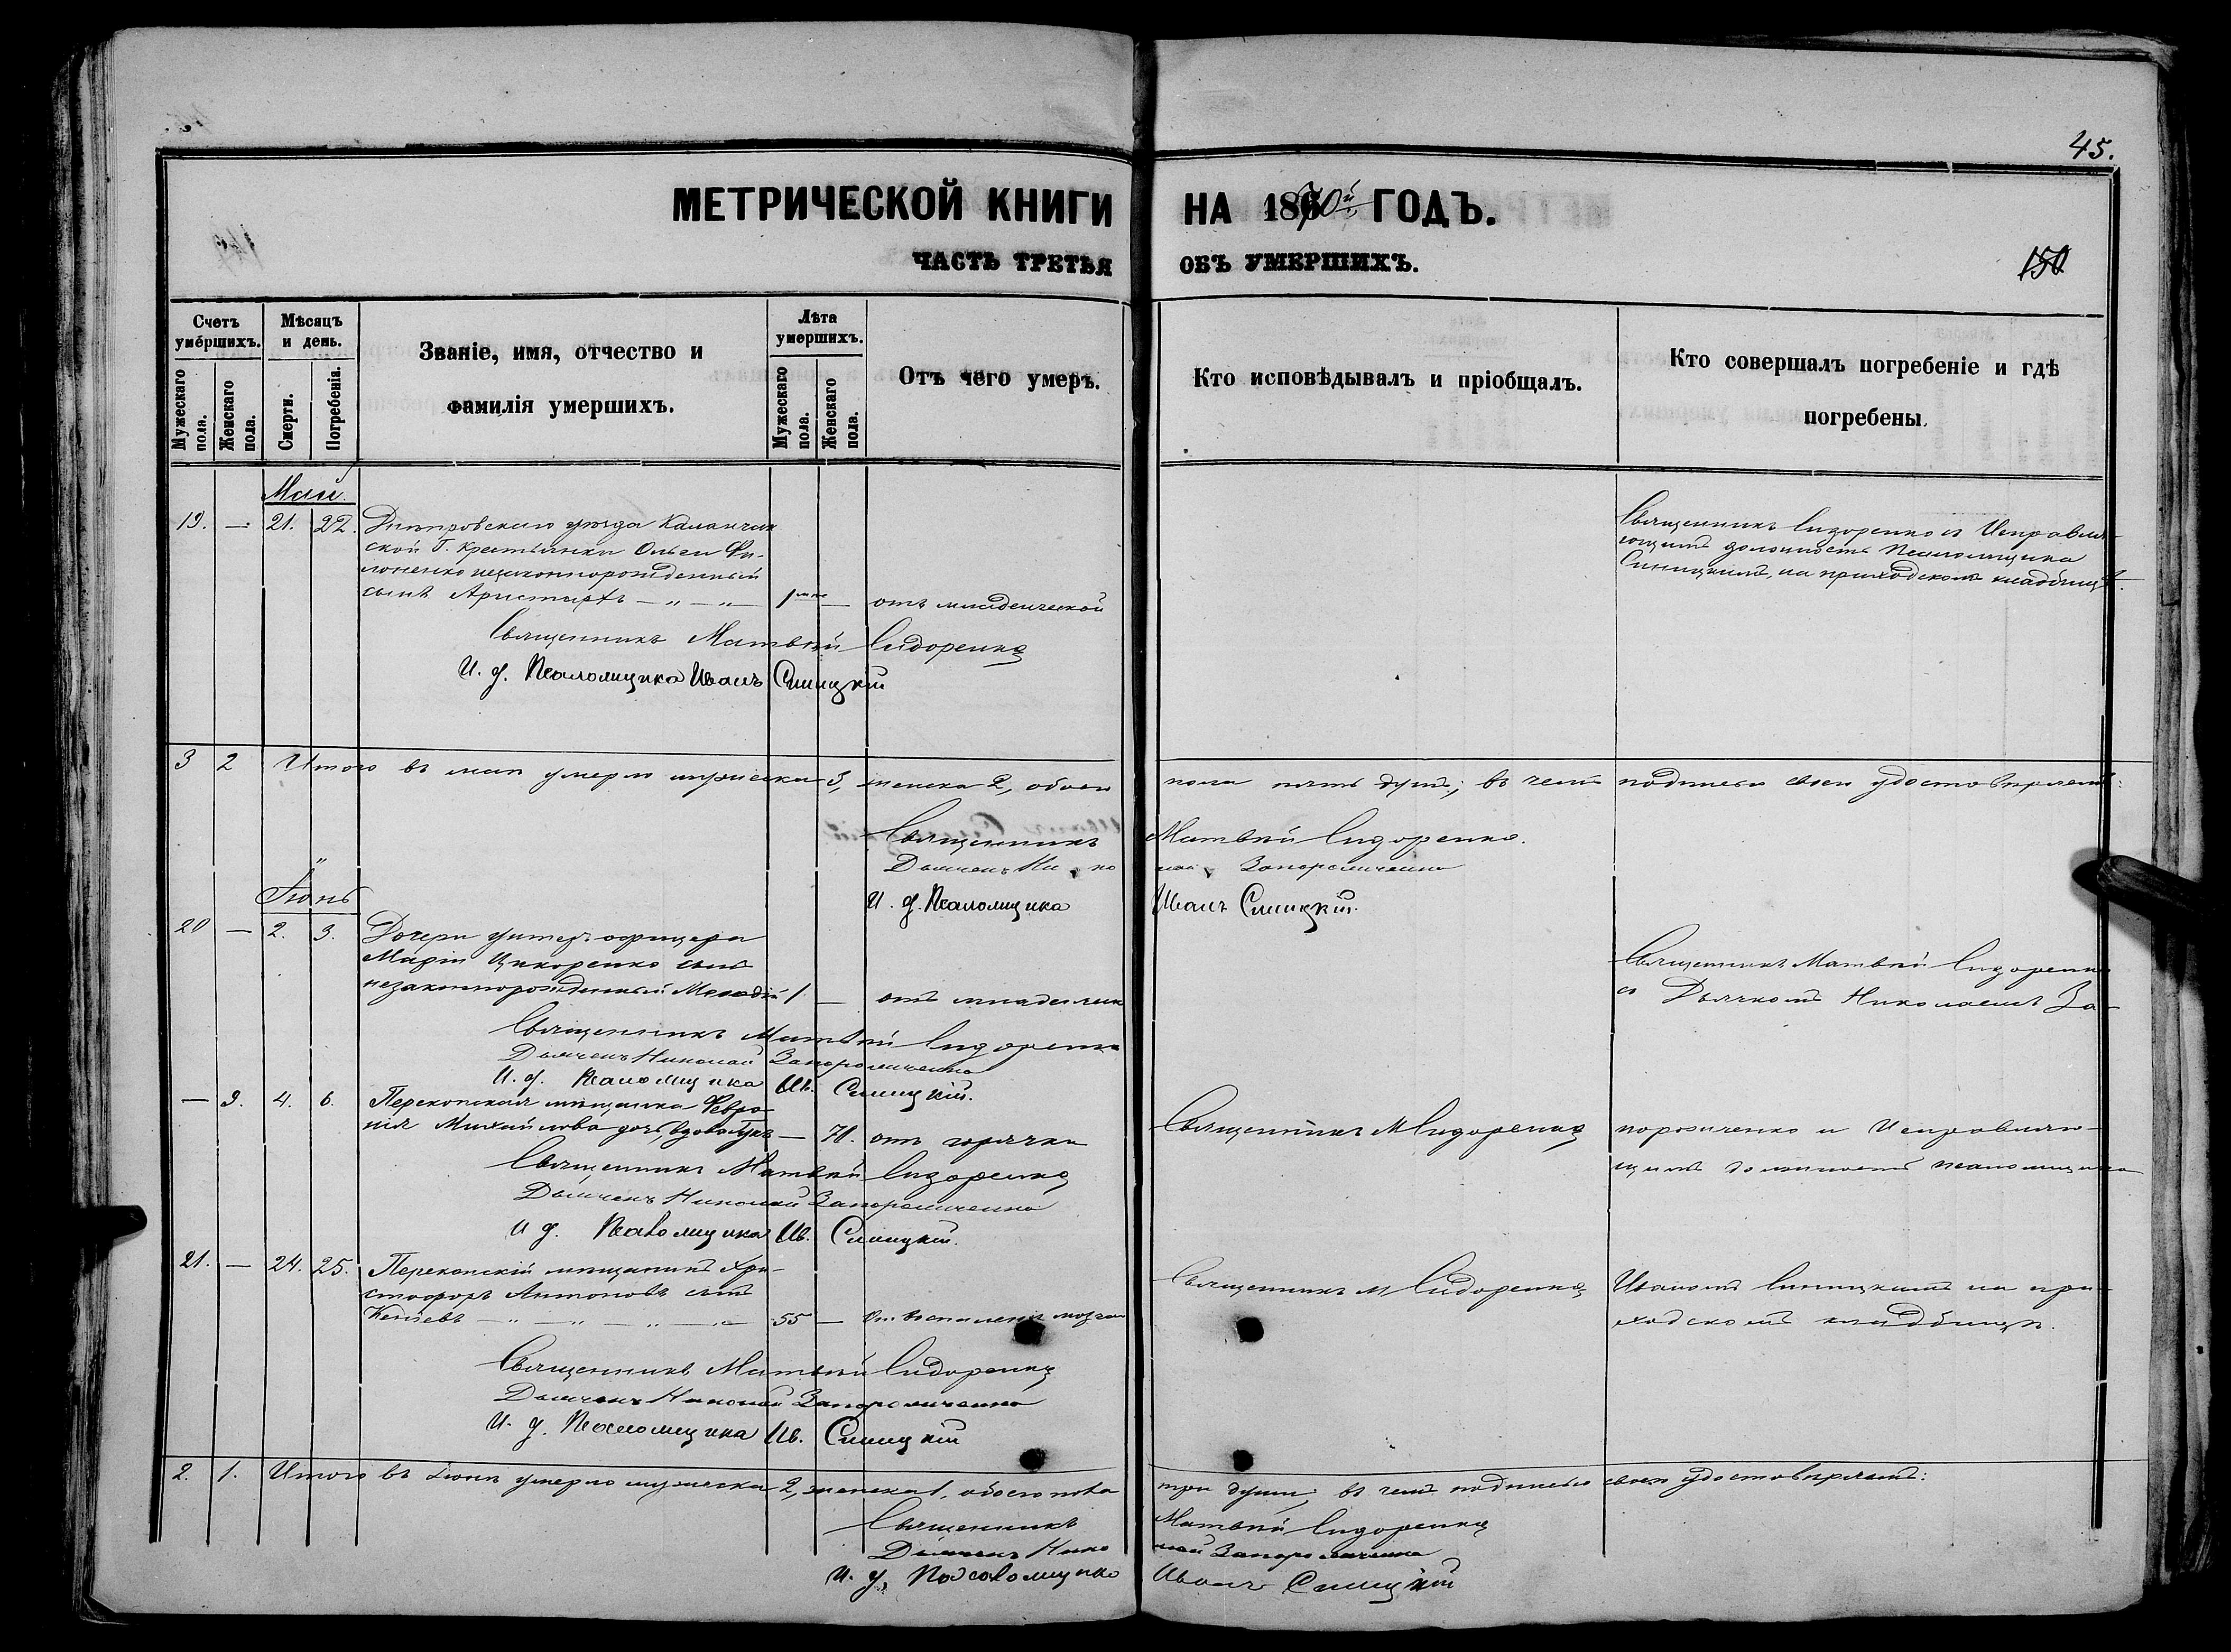 45.
МЕТРИЧЕСКОЙ КНИГИ НА 1870й ГОДЪ.
ЧАСТЬ ТРЕТЬЯ ОБЪ УМЕРШИХЪ.
150
Счетъ умершихъ.
Мужескаго пола.
Женскаго пола.
Мѣсяцъ и день.
Смерти.
Погребенія.
Званіе, имя, отчество и
фамилія умершихъ.
Лѣта умершихъ.
Мужескаго пола.
Женскаго пола.
Отъ чего умеръ.
Кто исповѣдывалъ и пріобщалъ.
Кто совершалъ погребеніе и гдѣ
погребены.
Май.
19. — 21. 22. Днѣпровскаго уѣзда Каланчак
ской В. крестьянки Ольги Фи-
лоненко незаконнорожденный
сынъ — " — " — 1 — отъ младенческой
Священникъ Сидоренко и Исправля-
ющимъ должность Псаломщика
Синицкимъ, на приходскомъ кладбищѣ.
Священникъ Матвѣй Сидоренко
И. д. Псаломщика Иванъ Синицкій
3 2 Итого въ маѣ умерло мужеска 3, женска 2, обоего пола пять душъ; въ чемъ подписью своею удостовѣряемъ:
Священникъ Матвѣй Сидоренко.
Дьячекъ Николай Запорожченко
И. д. Псаломщика Иванъ Синицкій.
Іюнь
20 — 2. 3. Дочери унтеръ офицера
Маріи Цикоренко сынъ
незаконнорожденный Меѳодій 1 — отъ младенческ
Священникъ Матвѣй Сидоренко
съ Дьячкомъ Николаемъ За-
Священникъ Матвѣй Сидоренко
Дьячекъ Николай Запорожченко
И. д. Псаломщика Ив. Синицкій.
— 9. 4. 6. Перекопская мѣщанка Февро-
нія Михайлова дочь, вдова — 70. отъ горячки
Священникъ М Сидоренко
порожченко и Исправляю-
щимъ должность псаломщика
Священникъ Матвѣй Сидоренко
Дьячекъ Николай Запорожченко
И д. Псаломщика Ив. Синицкій.
21. — 24. 25. Перекопскій мѣщанинъ Хри-
стофоръ Антоновъ сынъ
— " — " — " — " 55 — От воспаленія мозга
Священникъ М Сидоренко
Иваномъ Синицкимъ на при-
ходскомъ кладбищѣ.
Священникъ Матвѣй Сидоренко
Дьячекъ Николай Запорожченко
И. д. Псаломщика Ив. Синицкій
2. 1. Итого въ Іюнѣ умерло мужеска 2, женска 1, обоего пола три души; въ чемъ подписью своею удостовѣряемъ:
Священникъ Матвѣй Сидоренко
Дьячекъ Николай Запорожченко
И. д. Иванъ Синицкій